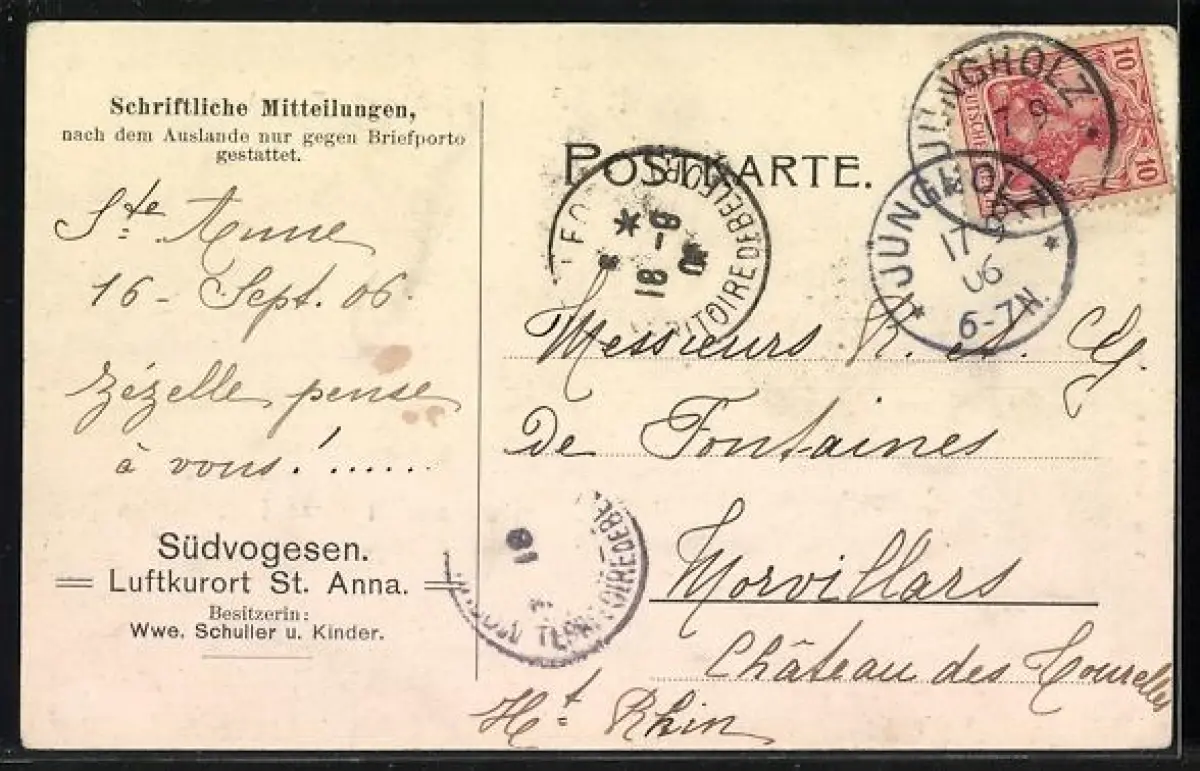 Schriftliche Mitteilungen,
nach dem Auslande nur gegen Briefporto
gestattet.
Ste Anne
16 - Sept. 06.
Zézelle pense
à vous!......
Südvogesen.
Luftkurort St. Anna.
Besitzerin:
Wwe. Schuller u. Kinder.
POSTKARTE.
Messieurs R. et Cy.
De Fontaines
Morvillars
Château des Tourelles
Ht Rhin
JUNGHOLZ
JUNGHOLZ
17
06
6-7N.
18 - 9
TERRITOIRE DE BEL
18
10
10